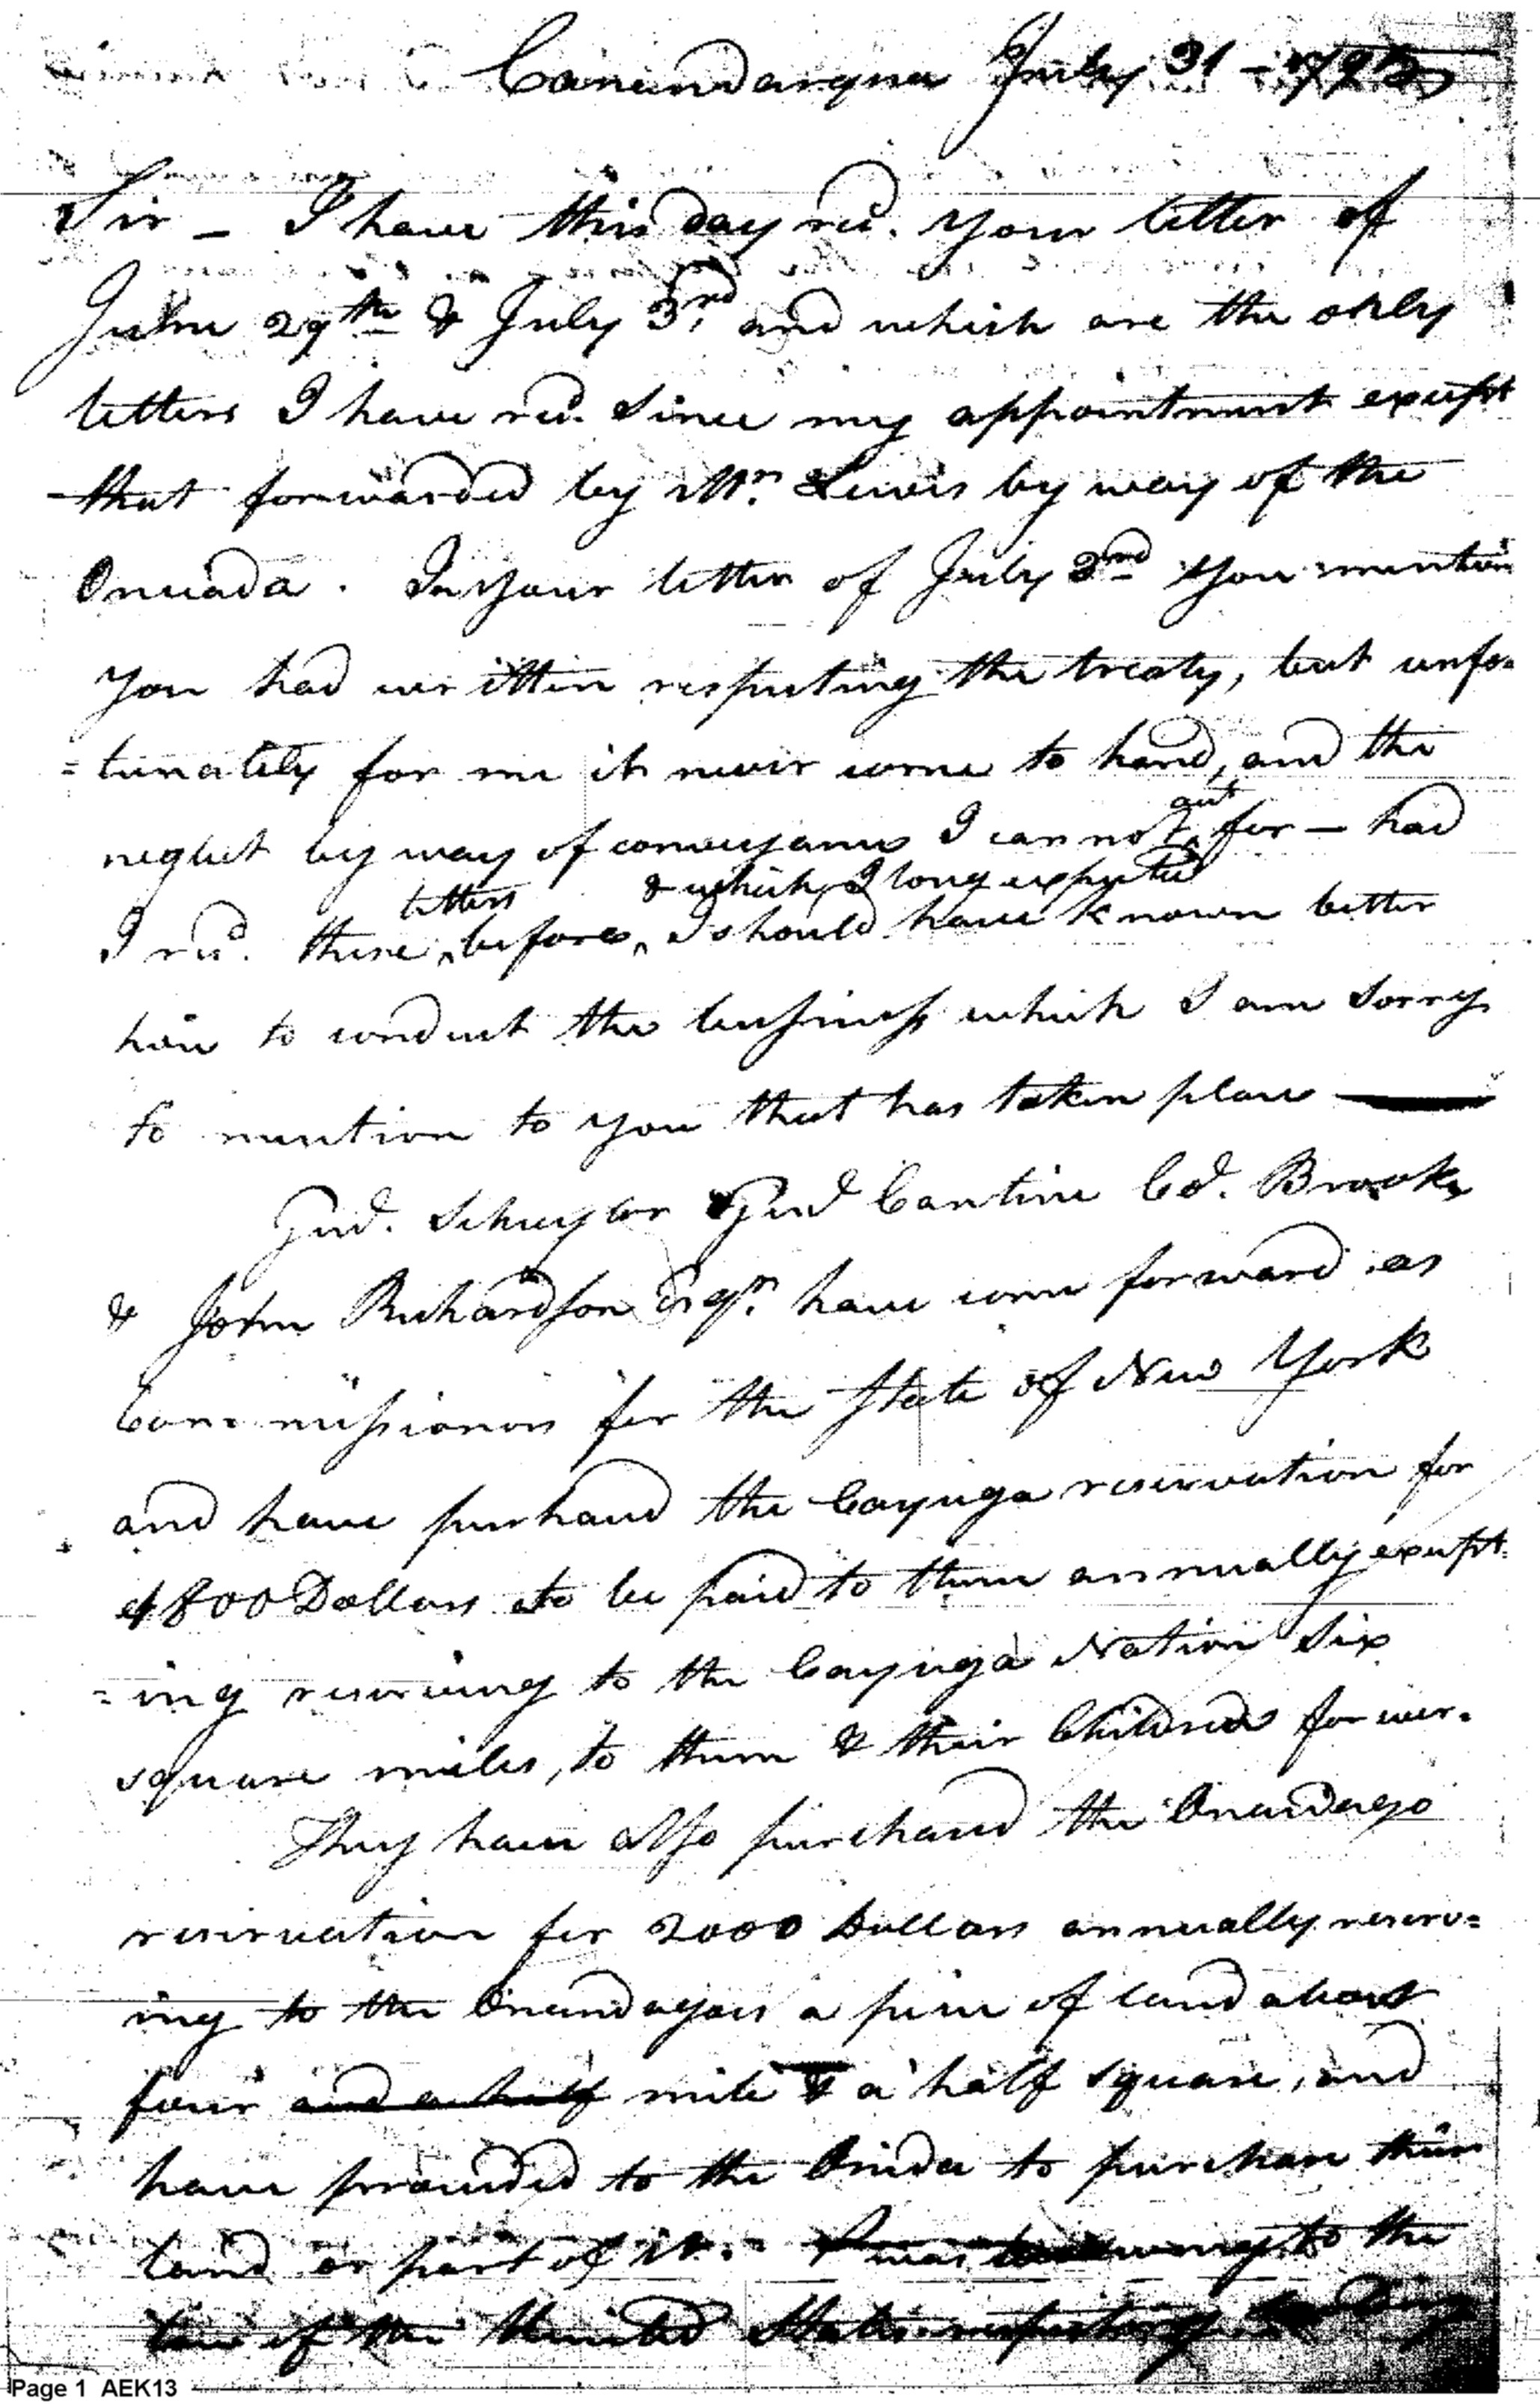 Canandarqua July 31 - 1795
Sir - I have this day recd. your letter of
June 29th & July 3rd and which are the only
letters I have recd. since my appointment except
that forwarded by Mr. Lewis by way of the
Oneiada. In your letter of July 3rd you mention
you had written respecting the treaty, but unfor
=tunately for me it never come to hand, and the
neglect by way of conveyance I cannot act for - had
I recd. these letters before, & which I long expected I should have known better
how to conduct the business which I am sorry
to mention to you that has taken place
Genl. Schuyler Genl Cantine Col. Brooks
& John Richardson Esqr. have come forward as
Commissioners for the State of New York
and have purhased the Cayuga reservation for
1800 Dollars to be paid to them annually except
=ing reserving to the Cayuga Nation six
square miles, to them & their Children forever.
They have also purchased the Onandago
reservation for 2000 Dollars annually reserv=
ing to the Onandagoes a piece of land about
four and a half mile & a half square, and
have proceeded to the Onida to purchase their
land or part of it. I was to the
law of the United States respecting
Page 1 AEK13